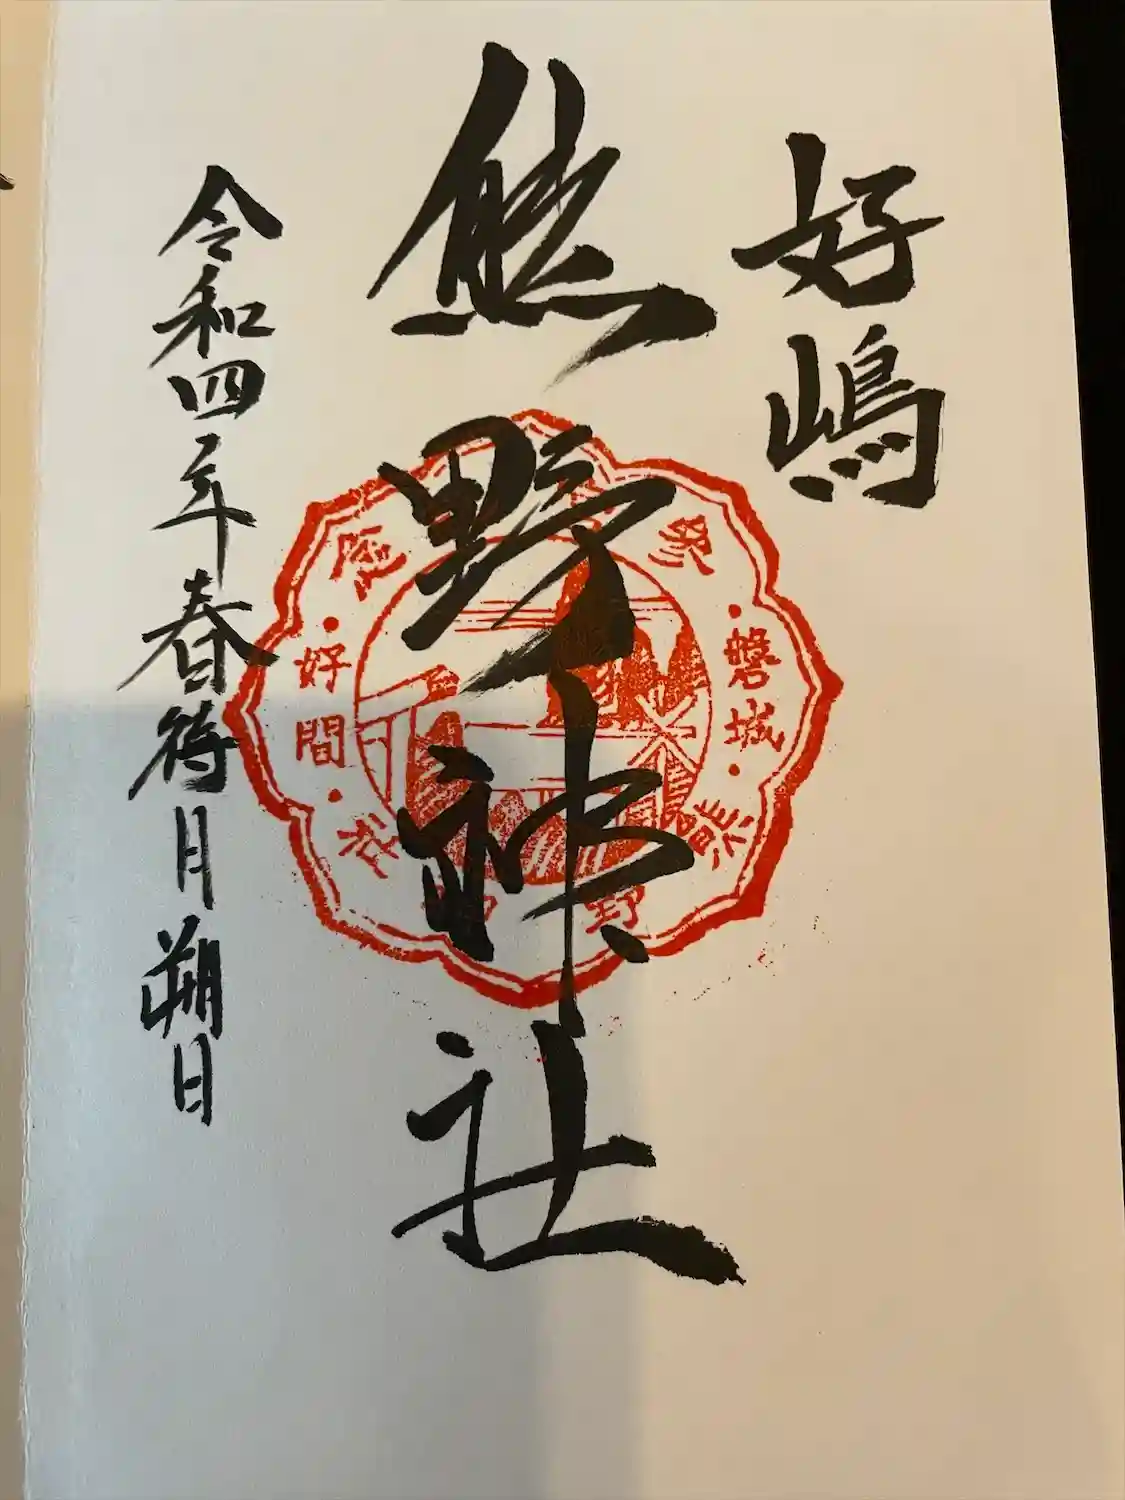 好嶋
熊野神社
令和四年春待月朔日
磐城
好間
熊野
社